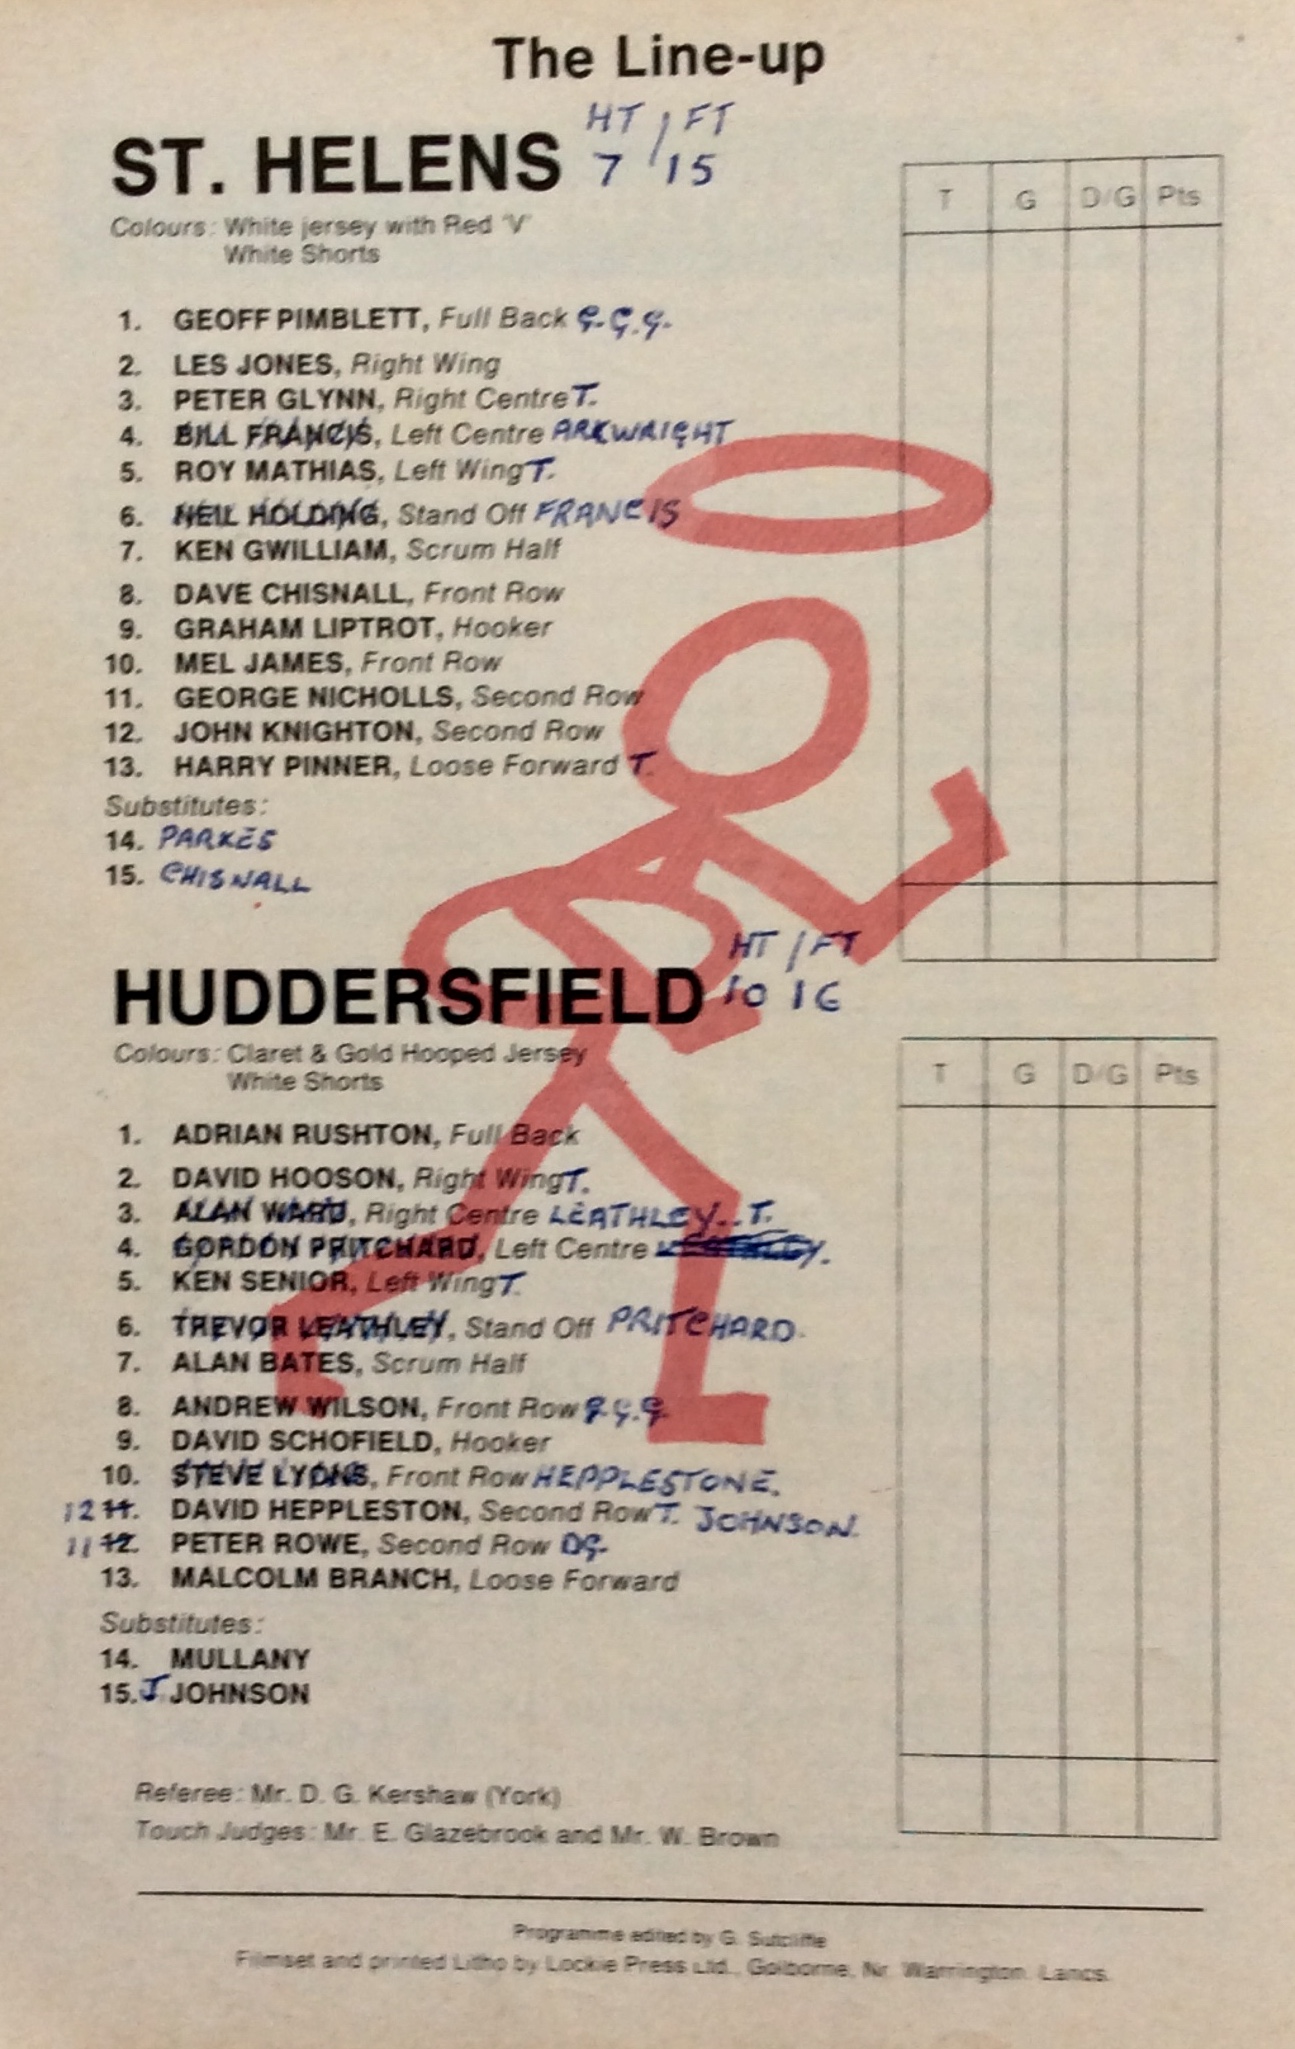 The Line-up
HT / FT
ST. HELENS 7 15
Colours: White jersey with Red 'V'
White Shorts
T G D/G Pts
1. GEOFF PIMBLETT, Full Back G.G.G.
2. LES JONES, Right Wing
3. PETER GLYNN, Right Centre T.
4. BILL FRANCIS, Left Centre ARKWRIGHT
5. ROY MATHIAS, Left Wing T.
6. NEIL HOLDING, Stand Off FRANCIS
7. KEN GWILLIAM, Scrum Half
8. DAVE CHISNALL, Front Row
9. GRAHAM LIPTROT, Hooker
10. MEL JAMES, Front Row
11. GEORGE NICHOLLS, Second Row
12. JOHN KNIGHTON, Second Row
13. HARRY PINNER, Loose Forward T.
Substitutes:
14. PARKES
15. CHISNALL
HT / FT
HUDDERSFIELD 10 16
Colours: Claret & Gold Hooped Jersey
White Shorts
T G D/G Pts
1. ADRIAN RUSHTON, Full Back
2. DAVID HOOSON, Right Wing T.
3. ALAN WARD, Right Centre LEATHLEY.. T.
4. GORDON PRITCHARD, Left Centre
5. KEN SENIOR, Left Wing T.
6. TREVOR LEATHLEY, Stand Off PRITCHARD.
7. ALAN BATES, Scrum Half
8. ANDREW WILSON, Front Row G.G.G.
9. DAVID SCHOFIELD, Hooker
10. STEVE LYONS, Front Row HEPPLESTONE.
12 11. DAVID HEPPLESTON, Second Row T. JOHNSON.
11 12. PETER ROWE, Second Row DG.
13. MALCOLM BRANCH, Loose Forward
Substitutes:
14. MULLANY
15. J JOHNSON
Referee: Mr. D. G. Kershaw (York)
Touch Judges: Mr. E. Glazebrook and Mr. W. Brown
Programme edited by G. Sutcliffe
Filmset and printed Litho by Lockie Press Ltd., Golborne, Nr. Warrington. Lancs.